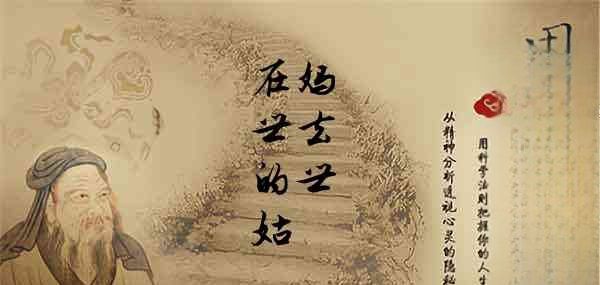 在世的姑
妈去世
从精神分析透视心灵的隐秘
用科学法则把握你的人生